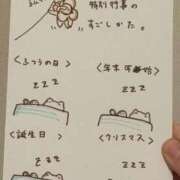 特別行事の
すごしかた。
〈ふつうの日〉
〈年末年始〉
zzz
zzz
〈誕生日〉
〈クリスマス〉
zzz
zzz